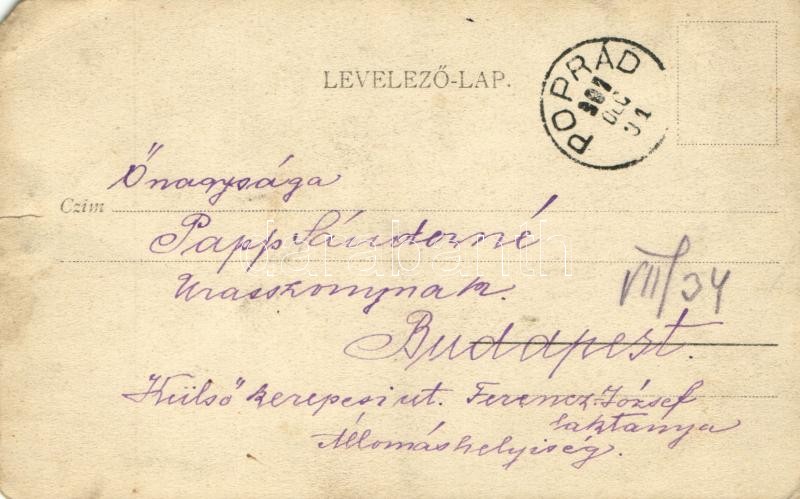 LEVELEZŐ-LAP.
POPRÁD
901
DEC
31
Őnagysága
Czim
Papp Sándorné
Urasszonynak.
Budapest.
VIII/34
Külső kerepesi ut. Ferencz József
laktanya
Állomáshelyiség.
darabanth